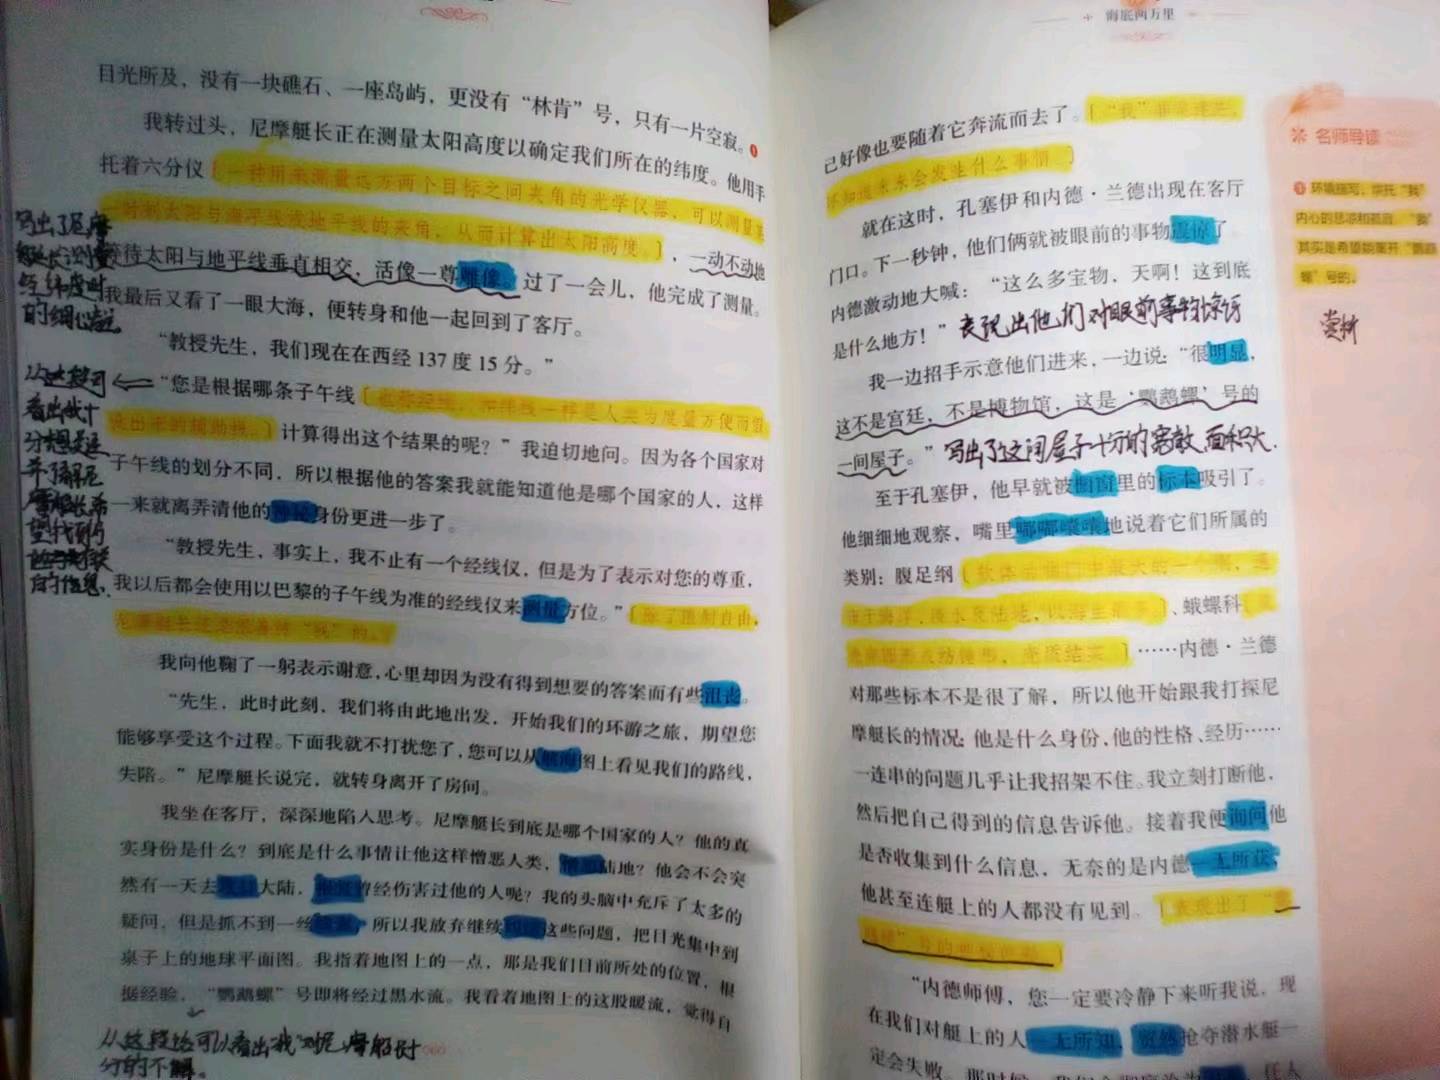 目光所及，没有一块礁石、一座岛屿，更没有“林肯”号，只有一片空寂。
我转过头，尼摩艇长正在测量太阳高度以确定我们所在的纬度。他用手
托着六分仪［一种用来测量远方两个目标之间夹角的光学仪器，可以测量某
一时刻太阳与海平线或地平线的夹角，从而计算出太阳高度。］，一动不动地
等待太阳与地平线垂直相交，活像一尊雕像。过了一会儿，他完成了测量。
我最后又看了一眼大海，便转身和他一起回到了客厅。
“教授先生，我们现在在西经137度15分。”
“您是根据哪条子午线［也称经线，和纬线一样是人类为度量方便而假
设出来的辅助线。］计算得出这个结果的呢？”我迫切地问。因为各个国家对
子午线的划分不同，所以根据他的答案我就能知道他是哪个国家的人，这样
一来就离弄清他的神秘身份更进一步了。
“教授先生，事实上，我不止有一个经线仪，但是为了表示对您的尊重，
我以后都会使用以巴黎的子午线为准的经线仪来测量方位。”［除了限制自由，
尼摩艇长还是很善待“我”的。］
我向他鞠了一躬表示谢意，心里却因为没有得到想要的答案而有些沮丧。
“先生，此时此刻，我们将由此地出发，开始我们的环游之旅，期望您
能够享受这个过程。下面我就不打扰您了，您可以从航海图上看见我们的路线，
失陪。”尼摩艇长说完，就转身离开了房间。
我坐在客厅，深深地陷入思考。尼摩艇长到底是哪个国家的人？他的真
实身份是什么？到底是什么事情让他这样憎恶人类，陆地？他会不会突
然有一天去大陆，曾经伤害过他的人呢？我的头脑中充斥了太多的
疑问，但是抓不到一丝，所以我放弃继续这些问题，把目光集中到
桌子上的地球平面图。我指着地图上的一点，那是我们目前所处的位置，根
据经验，“鹦鹉螺”号即将经过黑水流。我看着地图上的这股暖流，觉得自
写出了尼摩
艇长测量
经纬度时
的细心
从这段可
看出我十
分想
尼
望找到
的信息
从这段话可以看出“我”对尼摩船长十
分的不解。
海底两万里
己好像也要随着它奔流而去了。［“我”非常迷茫，
不知道未来会发生什么事情。］
就在这时，孔塞伊和内德·兰德出现在客厅
门口。下一秒钟，他们俩就被眼前的事物震惊了。
内德激动地大喊：“这么多宝物，天啊！这到底
是什么地方！”表现出他们对眼前事物惊讶
我一边招手示意他们进来，一边说：“很明显，
这不是宫廷，不是博物馆，这是‘鹦鹉螺’号的
一间屋子。”写出了这间屋子十分的宽敞，面积大.
至于孔塞伊，他早就被橱窗里的标本吸引了。
他细细地观察，嘴里嘟嘟囔囔地说着它们所属的
类别：腹足纲［软体动物门中最大的一个纲，遍
布于海洋、淡水及陆地，以海生最多］、蛾螺科［
］……内德·兰德
对那些标本不是很了解，所以他开始跟我打探尼
摩艇长的情况：他是什么身份、他的性格、经历……
一连串的问题几乎让我招架不住。我立刻打断他，
然后把自己得到的信息告诉他。接着我便询问他
是否收集到什么信息，无奈的是内德一无所获，
他甚至连艇上的人都没有见到。［表现出了“鹦
鹉螺”号的］
“内德师傅，您一定要冷静下来听我说，现
在我们对艇上的人一无所知，贸然抢夺潜水艇一
定会失败。那时候，我们
名师导读
❶环境描写，烘托“我”
内心的悲凉和孤寂。“我”
其实是希望能离开“鹦鹉
螺”号的。
赏析